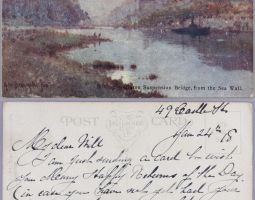 Suspension Bridge, from the Sea Wall.
POST CARD
49 Castle St
Jan 24th
My dear Will
I am just sending a card to wish
you Many Happy Returns of the Day
(in case you have not got